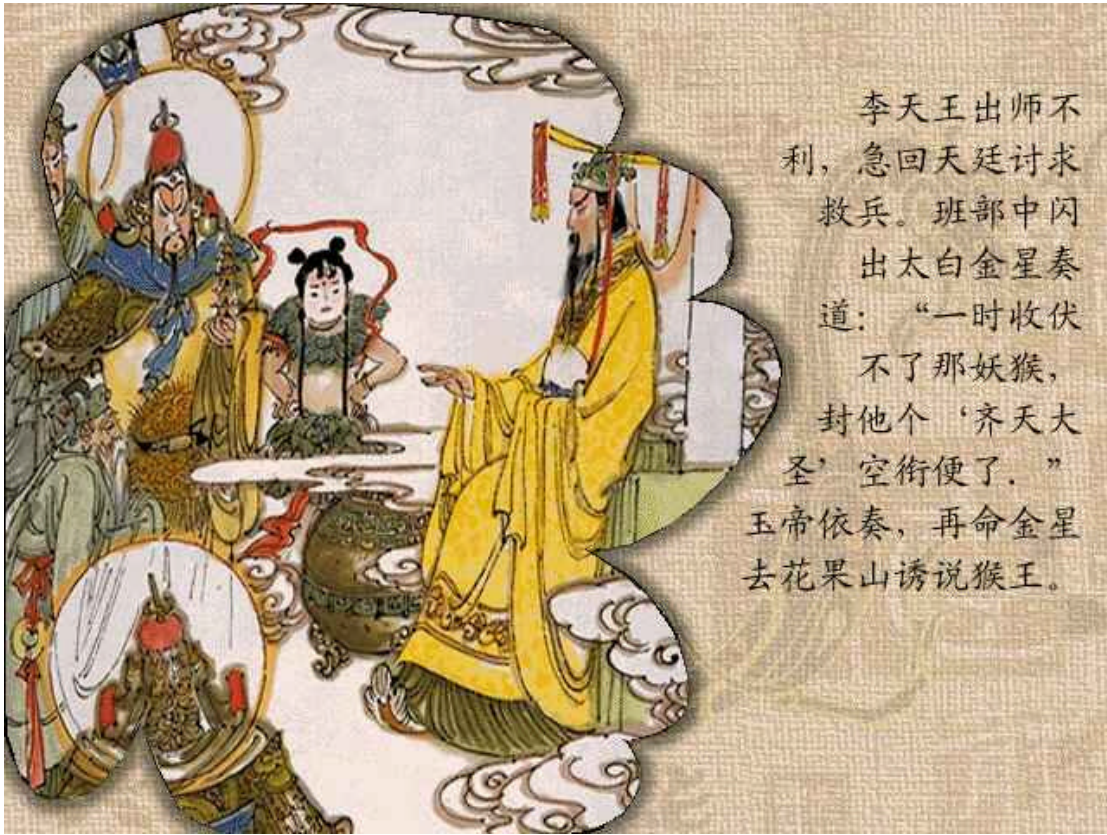 李天王出师不
利，急回天廷讨求
救兵。班部中闪
出太白金星奏
道：“一时收伏
不了那妖猴，
封他个‘齐天大
圣’空衔便了．”
玉帝依奏，再命金星
去花果山诱说猴王。